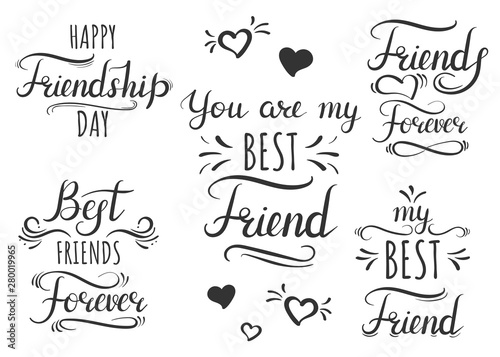 HAPPY
Friendship
DAY
You are my
BEST
Friend
Friends
Forever
Best
FRIENDS
Forever
my
BEST
Friend
Adobe Stock | #280019965